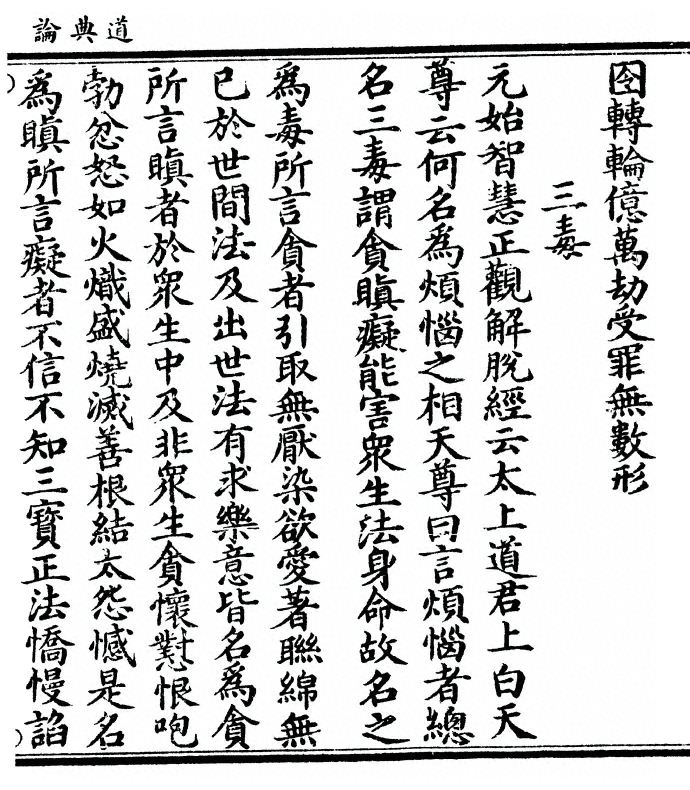 道典論
囹轉輪億萬劫受罪無數形
三毒
元始智慧正觀解脫經云太上道君上白天
尊云何名爲煩惱之相天尊曰言煩惱者總
名三毒謂貪瞋癡能害衆生法身命故名之
爲毒所言貪者引取無厭染欲愛著聯綿無
已於世間法及出世法有求樂意皆名爲貪
所言瞋者於衆生中及非衆生貪懷懟恨咆
勃忿怒如火熾盛燒滅善根結太怨憾是名
爲瞋所言癡者不信不知三寶正法憍慢諂